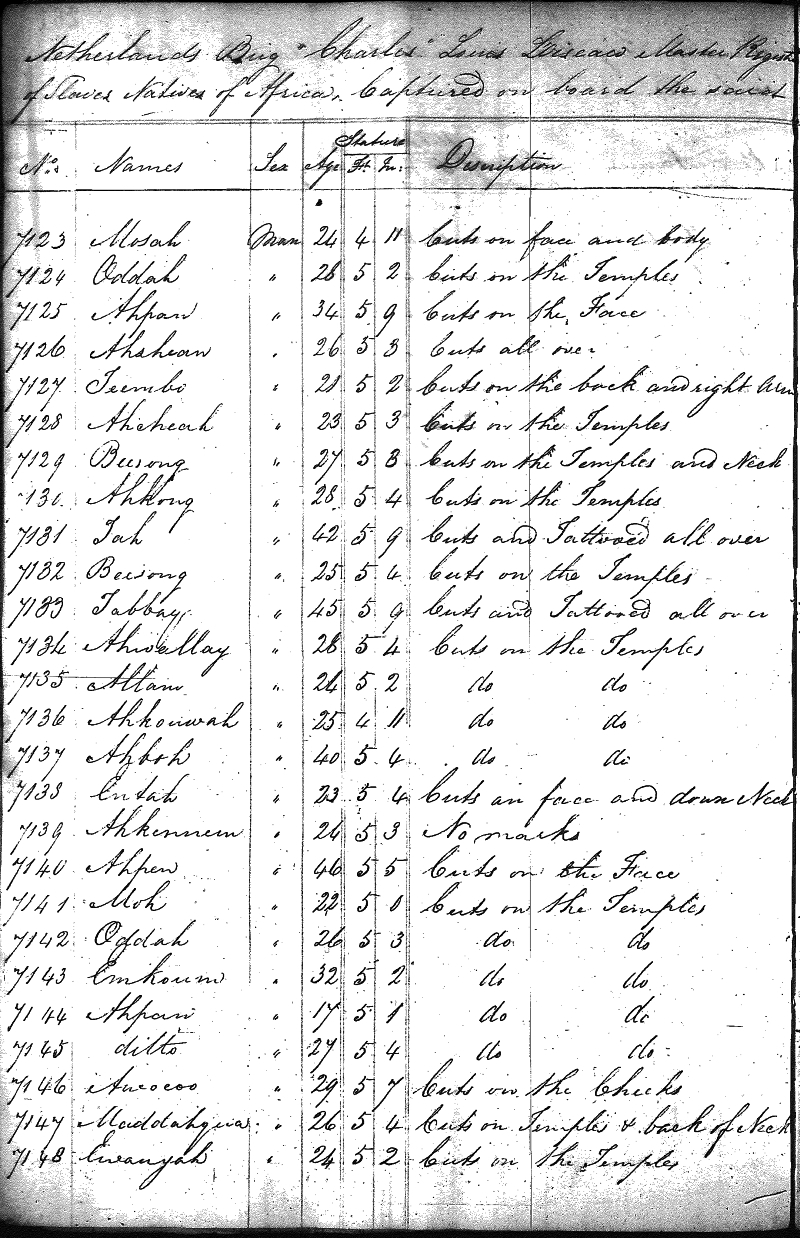 Netherlands Brig "Charles" Louis Master Register
of Slaves Natives of Africa, Captured on board the said
Stature
No. Names Sex Age Ft In: Discription
7123 Mosah Man 24 4 11 Cuts on face and body
7124 Oddah " 28 5 2 Cuts on the Temples
7125 Ahpan " 34 5 9 Cuts on the Face
7126 Ahshean " 26 5 3 Cuts all over
7127 Teembo " 21 5 2 Cuts on the back and right Arm
7128 Ahcheah " 23 5 3 Cuts on the Temples
7129 Beesong " 27 5 3 Cuts on the Temples and Neck
7130 Ahkong " 28 5 4 Cuts on the Temples
7131 Jah " 42 5 9 Cuts and Tattooed all over
7132 Beesong " 25 5 4 Cuts on the Temples
7133 Tabbay " 45 5 9 Cuts and Tattooed all over
7134 Ahwallay " 28 5 4 Cuts on the Temples
7135 Allam " 24 5 2 do do
7136 Ahkouwah " 25 4 11 do do
7137 Ahboh " 40 5 4 do do
7138 Entah " 23 5 4 Cuts on face and down Neck
7139 Ahkennem " 24 5 3 No marks
7140 Ahpen " 46 5 5 Cuts on the Face
7141 Moh " 22 5 0 Cuts on the Temples
7142 Oddah " 26 5 3 do do
7143 Emkoum " 32 5 2 do do
7144 Ahpan " 17 5 1 do do
7145 ditto " 27 5 4 do do
7146 Aucocoo " 29 5 7 Cuts on the Cheeks
7147 Maddahgwa " 26 5 4 Cuts on Temples & back of Neck
7148 Ewanyah " 24 5 2 Cuts on the Temples